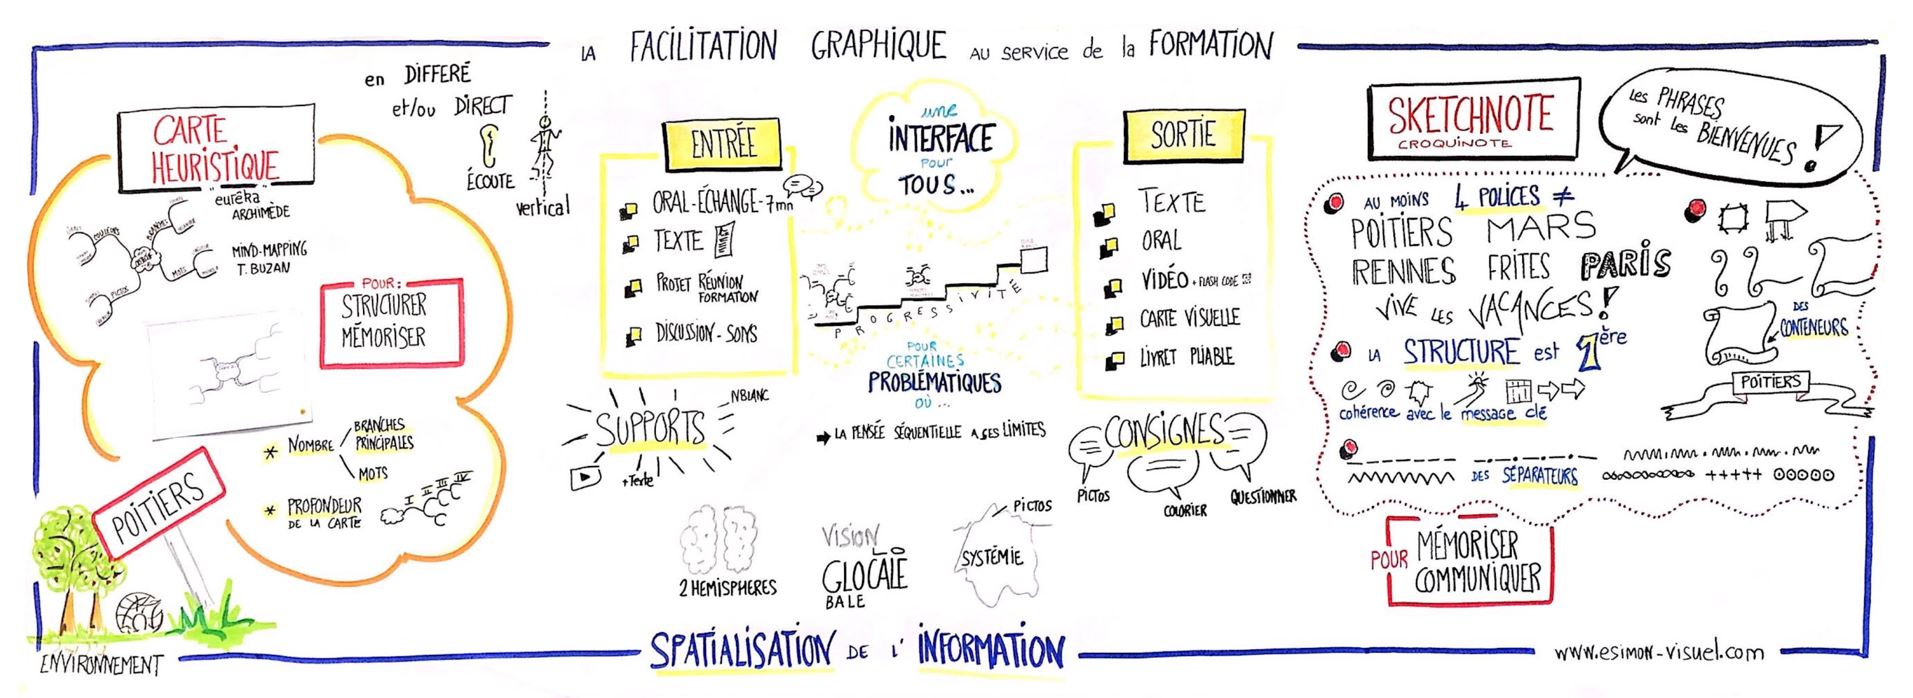 LA FACILITATION GRAPHIQUE AU SERVICE de la FORMATION
en DIFFERÉ
et/ou DIRECT
ÉCOUTE
vertical
CARTE
HEURISTIQUE
eurêka
ARCHIMÈDE
MIND-MAPPING
T. BUZAN
MOTS
PICTOS
POUR:
STRUCTURER
MÉMORISER
* NOMBRE
BRANCHES
PRINCIPALES
MOTS
* PROFONDEUR
DE LA CARTE
I II III IV
POITIERS
ENVIRONNEMENT
ENTRÉE
ORAL-ÉCHANGE-7mn
TEXTE
PROJET RÉUNION
FORMATION
DISCUSSION-SONS
SUPPORTS
NBLANC
+Texte
une
INTERFACE
POUR
TOUS...
PROGRESSIVITÉ
POUR
CERTAINES
PROBLÉMATIQUES
OÙ...
➡ LA PENSÉE SÉQUENTIELLE A SES LIMITES
2 HEMISPHERES
VISION
LO
GLOCALE
BALE
PICTOS
SYSTÉMIE
SORTIE
TEXTE
ORAL
VIDÉO + FLASH CODE
CARTE VISUELLE
LIVRET PLIABLE
CONSIGNES
PICTOS
COLORIER
QUESTIONNER
SKETCHNOTE
CROQUINOTE
Les PHRASES
sont les BIENVENUES!
AU MOINS 4 POLICES ≠
POITIERS MARS
RENNES FRITES PARIS
VIVE LES VACANCES!
LA STRUCTURE est 1ère
cohérence avec le message clé
DES
CONTENEURS
POITIERS
DES SÉPARATEURS
+++++
POUR
MÉMORISER
COMMUNIQUER
SPATIALISATION DE L'INFORMATION
www.esimon-visuel.com